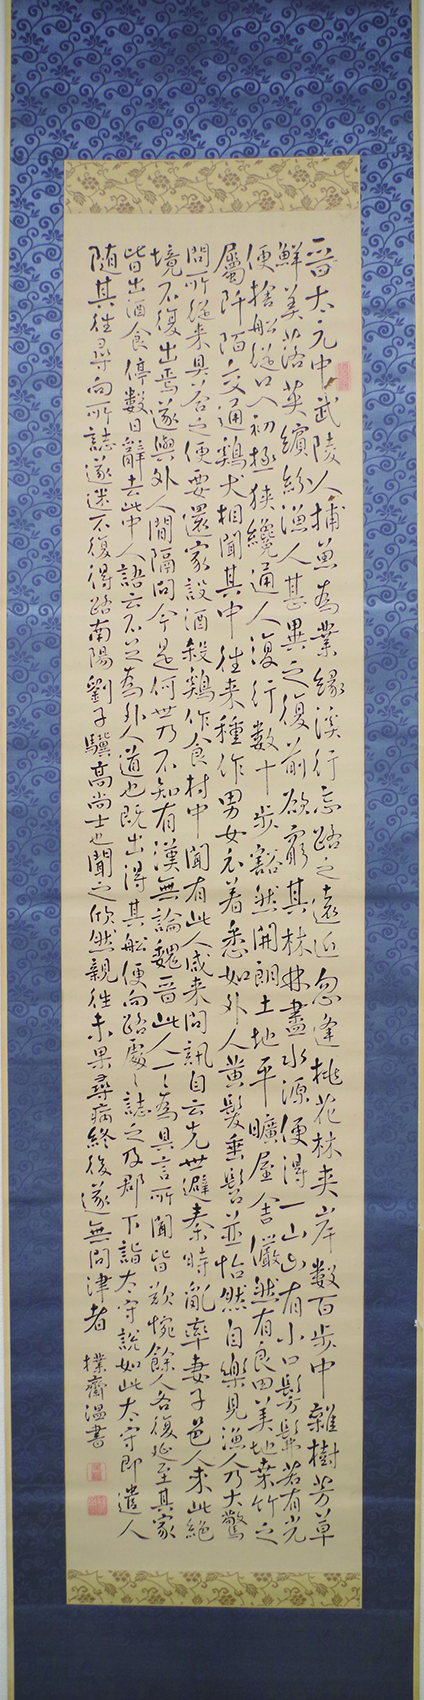 晉太元中武陵人捕魚為業緣溪行忘路之遠近忽逢桃花林夾岸數百步中雜樹芳草
鮮美落英繽紛漁人甚異之復前欲窮其林林盡水源便得一山山有小口髣髴若有光
便捨船從口入初極狹纔通人復行數十步豁然開朗土地平曠屋舍儼然有良田美地桑竹之
屬阡陌交通鷄犬相聞其中往来種作男女衣着悉如外人黄髮垂髫並怡然自樂見漁人乃大驚
問所從来具答之便要還家設酒殺鷄作食村中聞有此人咸来問訊自云先世避秦時亂率妻子邑人来此絶
境不復出焉遂與外人間隔問今是何世乃不知有漢無論魏晉此人一々為具言所聞皆歎惋餘人各復延至其家
皆出酒食停數日辭去此中人語云不足為外人道也既出得其船便向路處々誌之及郡下詣太守說如此太守即遣人
随其往尋向所誌遂迷不復得路南陽劉子驥高尚士也聞之欣然親往未果尋病終後遂無問津者
樸齋温書